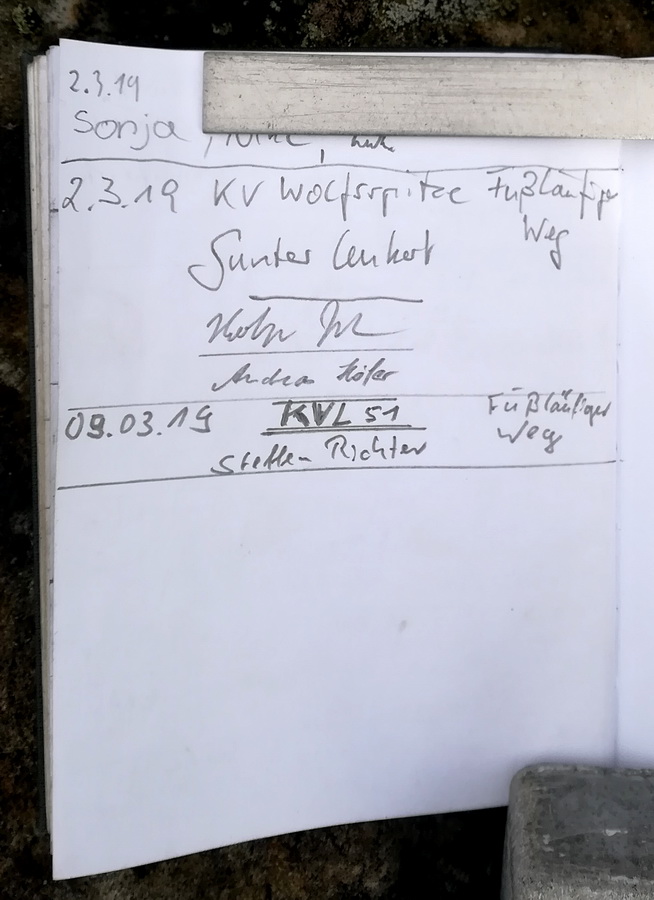 2.3.19
Sonja,
2.3.19 KV Wolfsspitze Fußläufiger
Weg
Gunter
Andreas Höfer
09.03.19 KVL 51 Fußläufiger
Weg
Steffen Richter